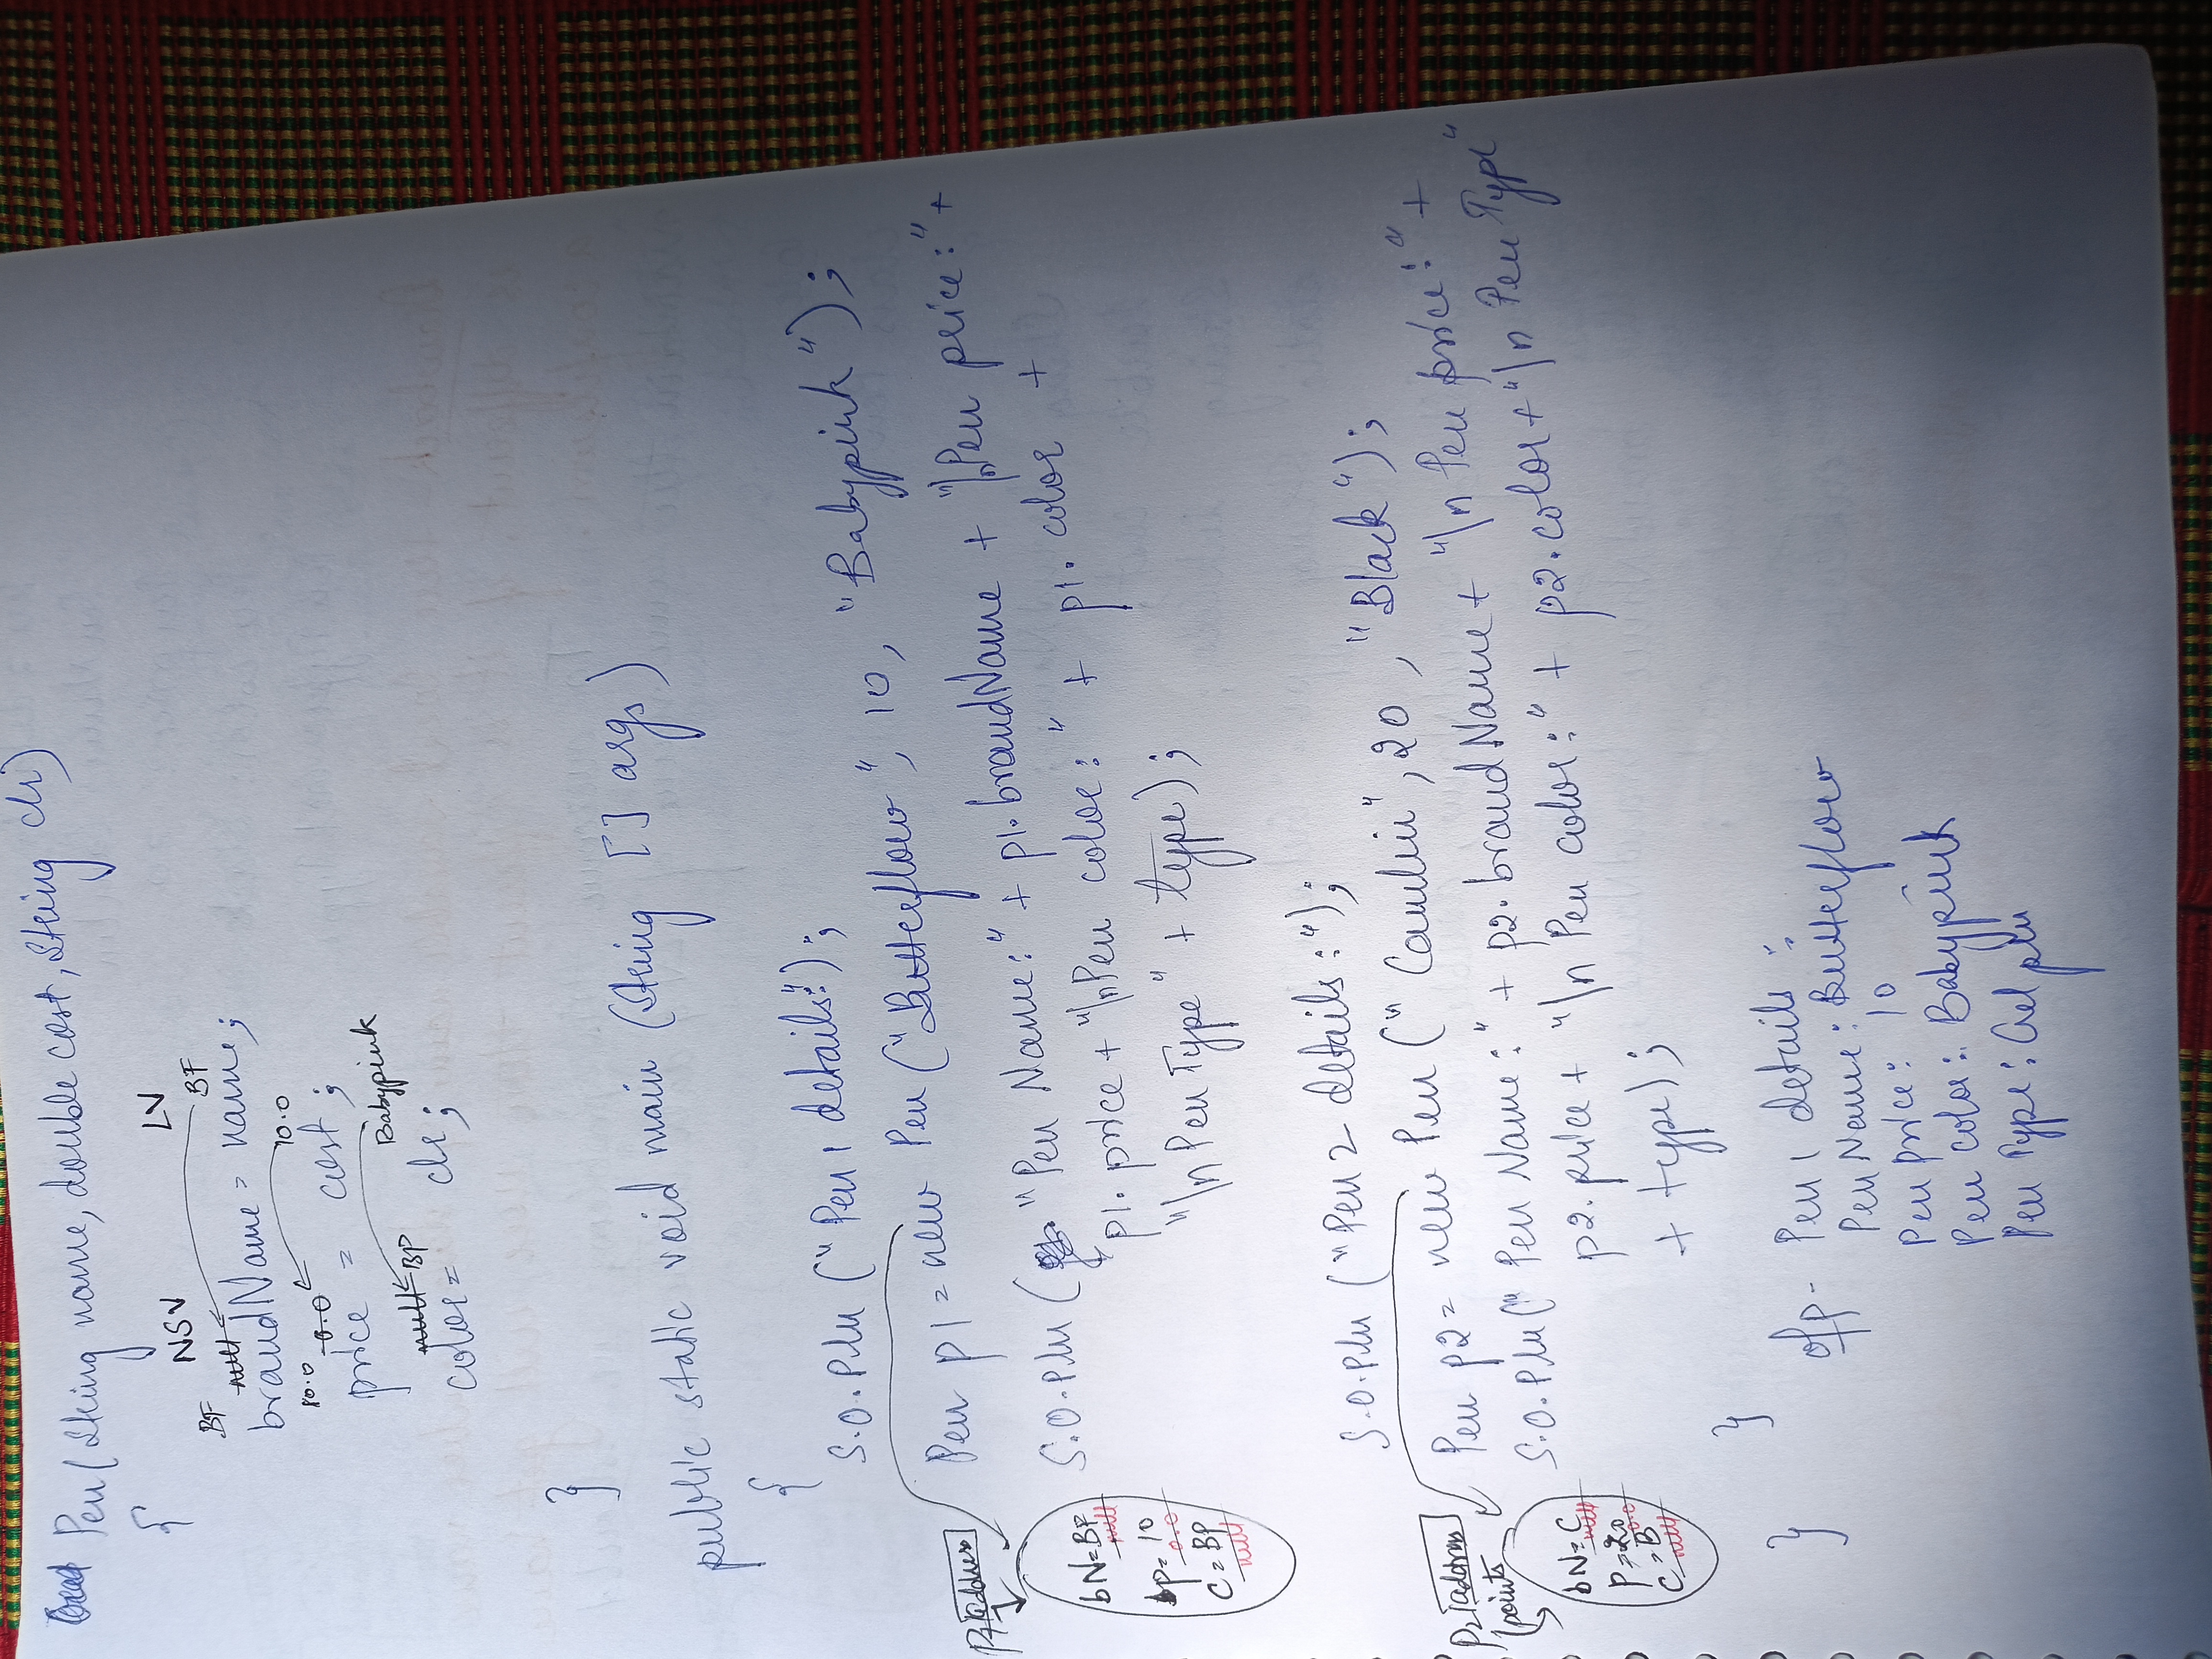 Pen (String name, double cost, String clr)
{
NSV LV
BF null BF
brandName = name;
10.0 0.0 10.0
price = cost;
null BP Babypink
color = clr;
}
public static void main (String [] args)
{
S.O.Pln ("Pen 1 details:");
Pen p1 = new Pen ("Butterflow", 10, "Babypink");
P1 address
S.O.Pln ("Pen Name:" + p1.brandName + "\nPen price:" +
p1.price + "\nPen color:" + p1.color +
"\n Pen Type" + type);
bN = BF
null
p = 10
0.0
C = BP
null
S.O.Pln ("Pen 2 details:");
Pen p2 = new Pen ("Camlin", 20, "Black");
P2 address
points
S.O.Pln (" Pen Name:" + p2.brandName + "\n Pen price:" +
p2.price + "\n Pen color:" + p2.color + "\n Pen Type"
+ type);
bN = C
null
P = 20
0.0
C = B
null
}
}
o/p - Pen 1 details :
Pen Name : Butterflow
Pen price : 10
Pen color : Babypink
Pen Type : Gel pen